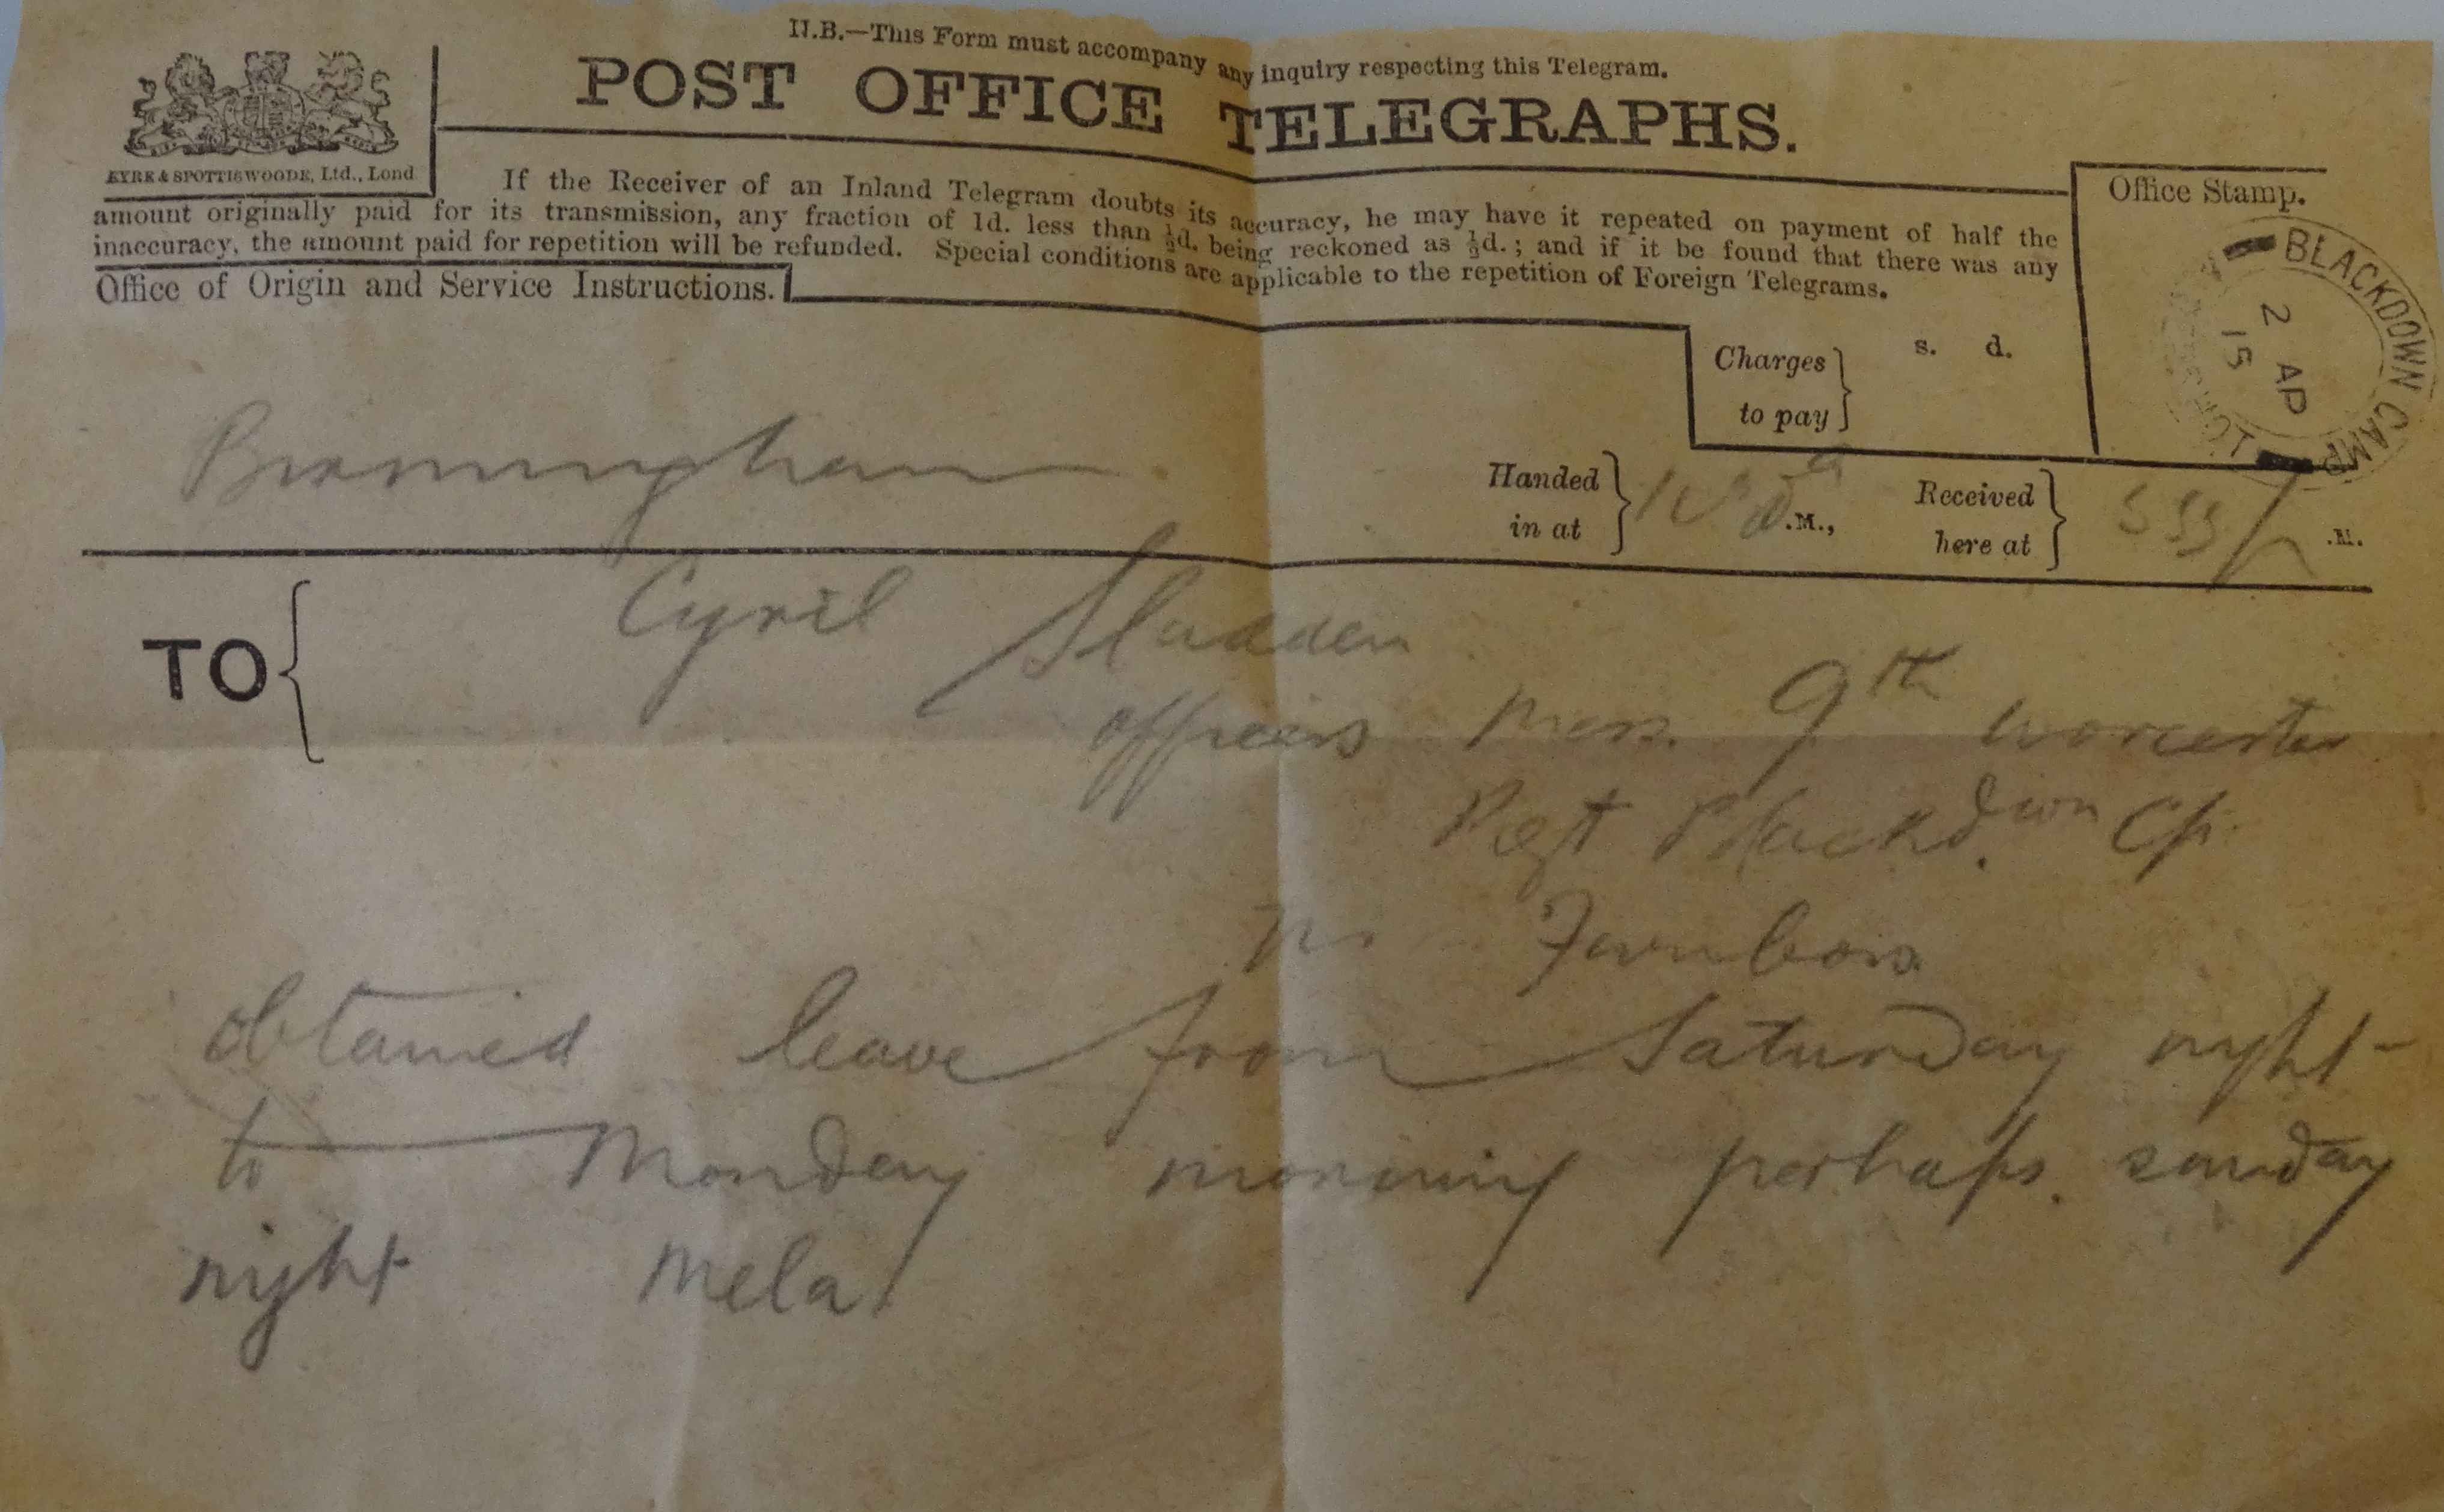 N.B.—This Form must accompany any inquiry respecting this Telegram.
POST OFFICE TELEGRAPHS.
EYRE & SPOTTISWOODE, Ltd., Lond
If the Receiver of an Inland Telegram doubts its accuracy, he may have it repeated on payment of half the
amount originally paid for its transmission, any fraction of 1d. less than ½d. being reckoned as ½d.; and if it be found that there was any
inaccuracy, the amount paid for repetition will be refunded. Special conditions are applicable to the repetition of Foreign Telegrams.
Office of Origin and Service Instructions.
Office Stamp.
BLACKDOWN CAMP
2 AP
15
Charges to pay
s. d.
Birmingham
Handed in at
.M.,
Received here at
.M.
TO
Cyril Sladden
officers Mess. 9th Worcester
Regt Blackdown Cp.
Nr Farnboro
obtained leave from Saturday night
to Monday morning perhaps. sunday
night Mela